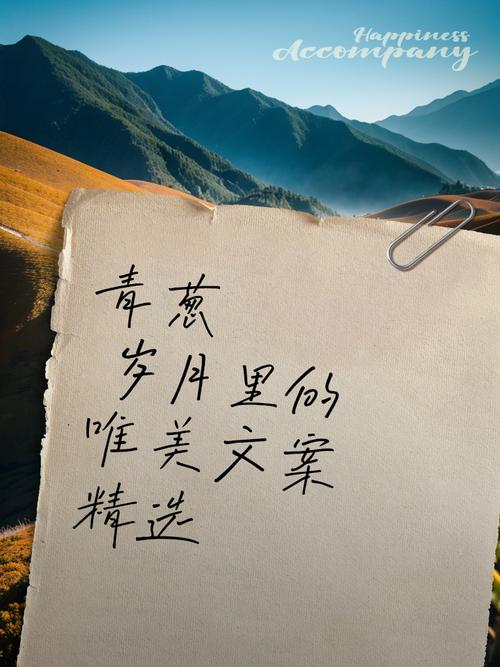 Happiness
Accompany
青葱
岁月里的
唯美文案
精选